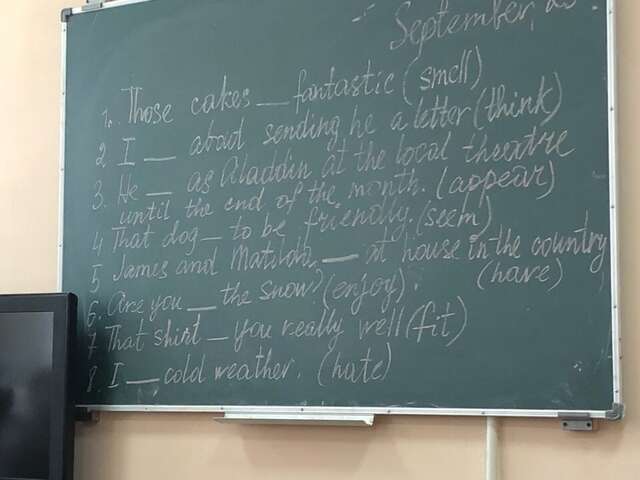 September, 20
1. Those cakes __ fantastic (smell)
2 I __ about sending he a letter (think)
3. He __ as Aladdin at the local theatre
until the end of the month. (appear)
4 That dog __ to be friendly. (seem)
5 James and Matilda __ at house in the country
(have)
6. Are you __ the snow? (enjoy).
7 That shirt __ you really well (fit)
8. I __ cold weather. (hate)